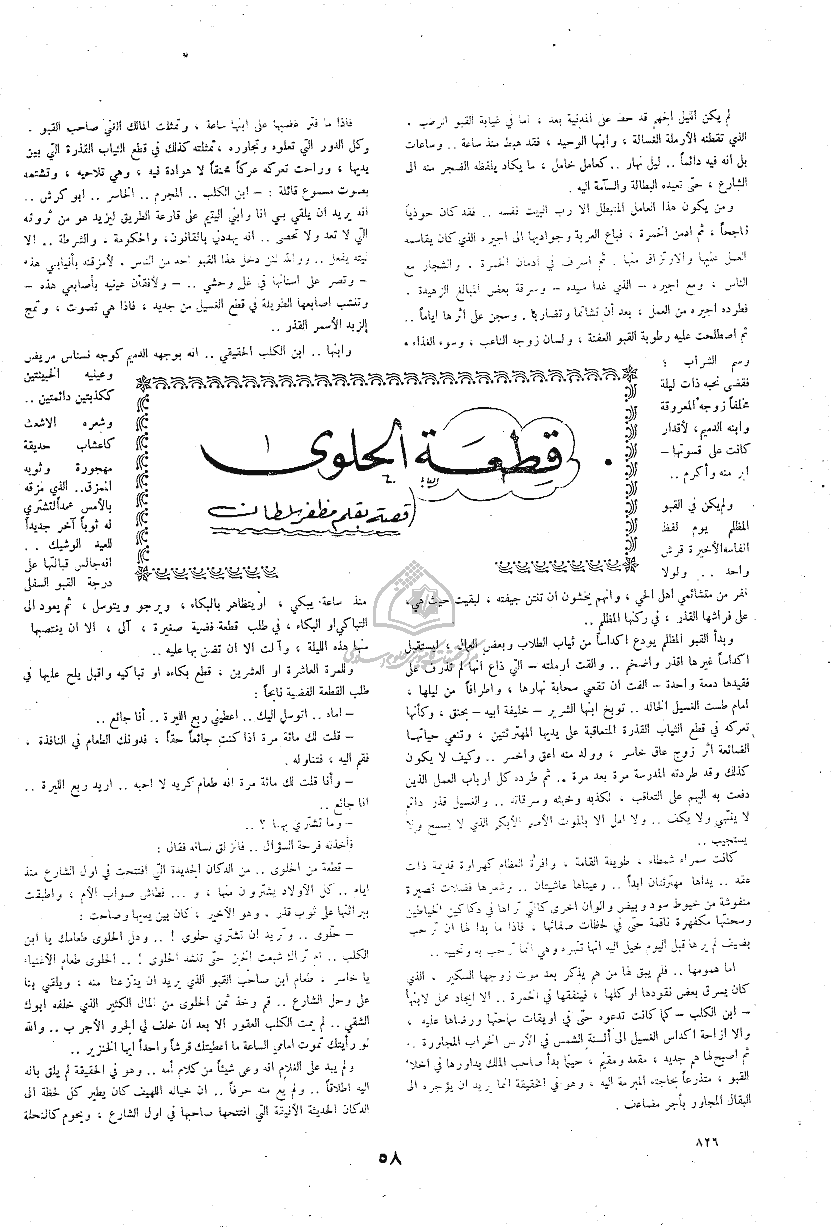 لم يكن الليل الجهم قد حط على المدينة بعد ، اما في غيابة القبو الرطب .
الذي تقطنه الأرملة الغسالة ، وابنها الوحيد ، فقد هبط منذ ساعة .. وساعات
بل انه فيه دائماً .. ليل نهار .. كعامل خامل ، ما يكاد يلفظه الفجر منه الى
الشارع ، حتى تعيده البطالة والسآمة اليه .
ومن يكون هذا العامل المتبطل الا رب البيت نفسه .. فقد كان حوذياً
ناجحاً ، ثم ادمن الخمرة ، فباع العربة وجواديها الى اجيره الذي كان يقاسمه
العمل عليها والارتزاق منها . ثم اسرف في ادمان الخمرة . والشجار مع
الناس ، ومع اجيره – الذي غدا سيده – وسرقة بعض المبالغ الزهيدة .
فطرده اجيره من العمل ، بعد أن تشاتما وتضاربا . وسجن على اثرها اياماً ..
ثم اصطلحت عليه رطوبة القبو العفنة ، ولسان زوجه الناعب ، وسوء الغذاء ،
وسم الشراب ؛
فقضى نحبه ذات ليلة
مخلفاً زوجه المعروقة
وابنه الدميم، لأقدار
كانت على قسوتها –
ابر منه وأكرم ..
ولم يكن في القبو
المظلم يوم لفظ
انفاسه الأخيرة قرش
واحد ... ولولا
نفر من متشائمي اهل الحي ، وانهم يخشون أن تنتن جيفته ، لبقيت حيث هي،
على فراشها القذر ، في ركنها المظلم ..
وبدأ القبو المظلم يودع اكداساً من ثياب الطلاب وبعض العمال ، ليستقبل
اكداساً غيرها اقذر واضخم .. والفت ارملته – التي ذاع انها لم تذرف على
فقيدها دمعة واحدة – الفت أن تقعي سحابة نهارها ، واطرافاً من ليلها ،
امام طست الغسيل الحاله .. توبخ ابنها الشرير – خليفة ابيه – بحنق ، وكأنها
تعركه في قطع الثياب القذرة المتعاقبة على يديها المهترئتين ، وتنعي حياتها
الضائعة اثر زوج عاق خاسر ، وولد منه اعق واخسر .. وكيف لا يكون
كذلك وقد طردته المدرسة مرة بعد مرة .. ثم طرده كل ارباب العمل الذين
دفعت به اليهم على التعاقب ، لكذبه وخبثه وسرقاته .. والغسيل قذر دائم
لا ينتهي ولا يكف .. ولا امل الا بالموت الأصم الأبكم الذي لا يسمع ولا
يستجيب ..
كانت سمراء شمطاء ، طويلة القامة ، وافرة العظام كهراوة قديمة ذات
عقد .. يداها مهترئتان ابداً .. وعيناها عاشيتان .. وشعرها فضلات قصيرة
منفوشة من خيوط سود وبيض والوان اخرى كالتي تراها في دكاكين الخياطين
وسحنتها مكفهرة ناقمة حتى في لحظات صفائها . فاذا ما بدا لها ان ترحب
بضيف لم يرها قبل اليوم خيل اليه انها تنتهره وهي انما ترحب به وتحييه ..
اما همومها .. فلم يبق لها من هم يذكر بعد موت زوجها السكير . الذي
كان يسرق بعض نقودها او كلها ، فينفقها في الخمرة .. الا ايجاد عمل لابنها
– ابن الكلب – كما كانت تدعوه حتى في اويقات سماحتها ورضاها عليه ،
والا ازاحة اكداس الغسيل الى ألسنة الشمس في الأرض الخراب المجاورة .
ثم اصبح لها هم جديد ، مقعد ومقيم ، حينما بدأ صاحب الملك يداورها في اخلاء
القبو ، متذرعاً بحاجته المبرمة اليه ، وهو في الحقيقة انما يريد ان يؤجره الى
البقال المجاور بأجر مضاعف .
قطعة الحلوى
قصة بقلم مظفر سلطان
فاذا ما فتر غضبها على ابنها ساعة ، وتمثلت المالك الفتي صاحب القبو .
وكل الدور التي تعلوه وتجاوره ، تمثلته كذلك في قطع الثياب القذرة التي بين
يديها ، وراحت تعركه عركاً محنقاً لا هوادة فيه ، وهي تلاحيه ، وتشتمه
بصوت مسموع قائلة : – ابن الكلب .. المجرم .. الخاسر .. ابو كرش ..
انه يريد ان يلقي بي انا وابني اليتيم على قارعة الطريق ليزيد هو من ثروته
التي لا تعد ولا تحصى .. انه يهددني بالقانون، والحكومة . والشرطة .. الا
ليته يفعل .. والله لئن دخل هذا القبو احد من الناس . لأمزقنه بأنيابي هذه
– وتصر على اسنانها في غل وحشي .. – ولأفقأن عينيه بأصابعي هذه –
وتنشب اصابعها الطويلة في قطع الغسيل من جديد ، فاذا هي تصوت ، وتمج
الزبد الأسمر القذر ..
وابنها .. ابن الكلب الحقيقي .. انه بوجهه الدميم كوجه نسناس مريض
وعينيه الخبيثتين
ككذبتين دائمتين ..
وشعره الاشعث
كاعشاب حديقة
مهجورة وثوبه
الممزق.. الذي مزقه
بالأمس عمداً لتشتري
له ثوباً آخر جديداً
للعيد الوشيك ..
انه جالس قبالتها على
درجة القبو السفلى
منذ ساعة. يبكي ، أو يتظاهر بالبكاء ، ويرجو ويتوسل ، ثم يعود الى
التباكي او البكاء ، في طلب قطعة فضية صغيرة ، آلى ، الا ان يغتصبها
منها هذه الليلة ، وآلت الا ان تضن بها عليه ..
وللمرة العاشرة او العشرين ، قطع بكاءه او تباكيه واقبل يلح عليها في
طلب القطعة الفضية نابحاً :
– اماه .. اتوسل اليك .. اعطيني ربع الليرة .. أنا جائع ..
– قلت لك مائة مرة اذا كنت جائعاً حقاً ، فدونك الطعام في النافذة ،
فقم اليه ، فتناوله .
– وأنا قلت لك مائة مرة انه طعام كريه لا احبه .. اريد ربع الليرة ..
انا جائع ..
– وما تشتري بها ؟ ..
فأخذته فرحة السؤال .. فانزلق لسانه فقال :
– قطعة من الحلوى .. من الدكان الجديدة التي افتتحت في اول الشارع منذ
ايام .. كل الأولاد يشترون منها ، و ... فطاش صواب الأم ، واطبقت
ببراثنها على ثوب قذر . وهو الأخير ، كان بين يديها وصاحت :
– حلوى .. وتريد ان تشتري حلوى ! .. ودل الحلوى طعامك يا ابن
الكلب .. ام تراك شبعت الخبز حتى تفقد الحلوى ! .. الحلوى طعام الأغنياء
يا خاسر . طعام ابن صاحب القبو الذي يريد ان ينزعنا منه ، ويلقي بنا
على وحل الشارع .. قم وخذ ثمن الحلوى من المال الكثير الذي خلفه ابوك
الشقي .. لم يمت الكلب العقور الا بعد ان خلف لي الجرو الأجرب .. والله
لو رأيتك تموت امامي الساعة ما اعطيتك قرشاً واحداً ايها الخنزير ..
ولم يبد على الغلام انه وعى شيئاً من كلام أمه .. وهو في الحقيقة لم يلق باله
اليه اطلاقاً .. ولم يع منه حرفاً .. ان خياله اللهيف كان يطير كل لحظة الى
الدكان الحديثة الأنيقة التي افتتحها صاحبها في اول الشارع ، ويحوم كالنحلة
٨٢٦
٥٨